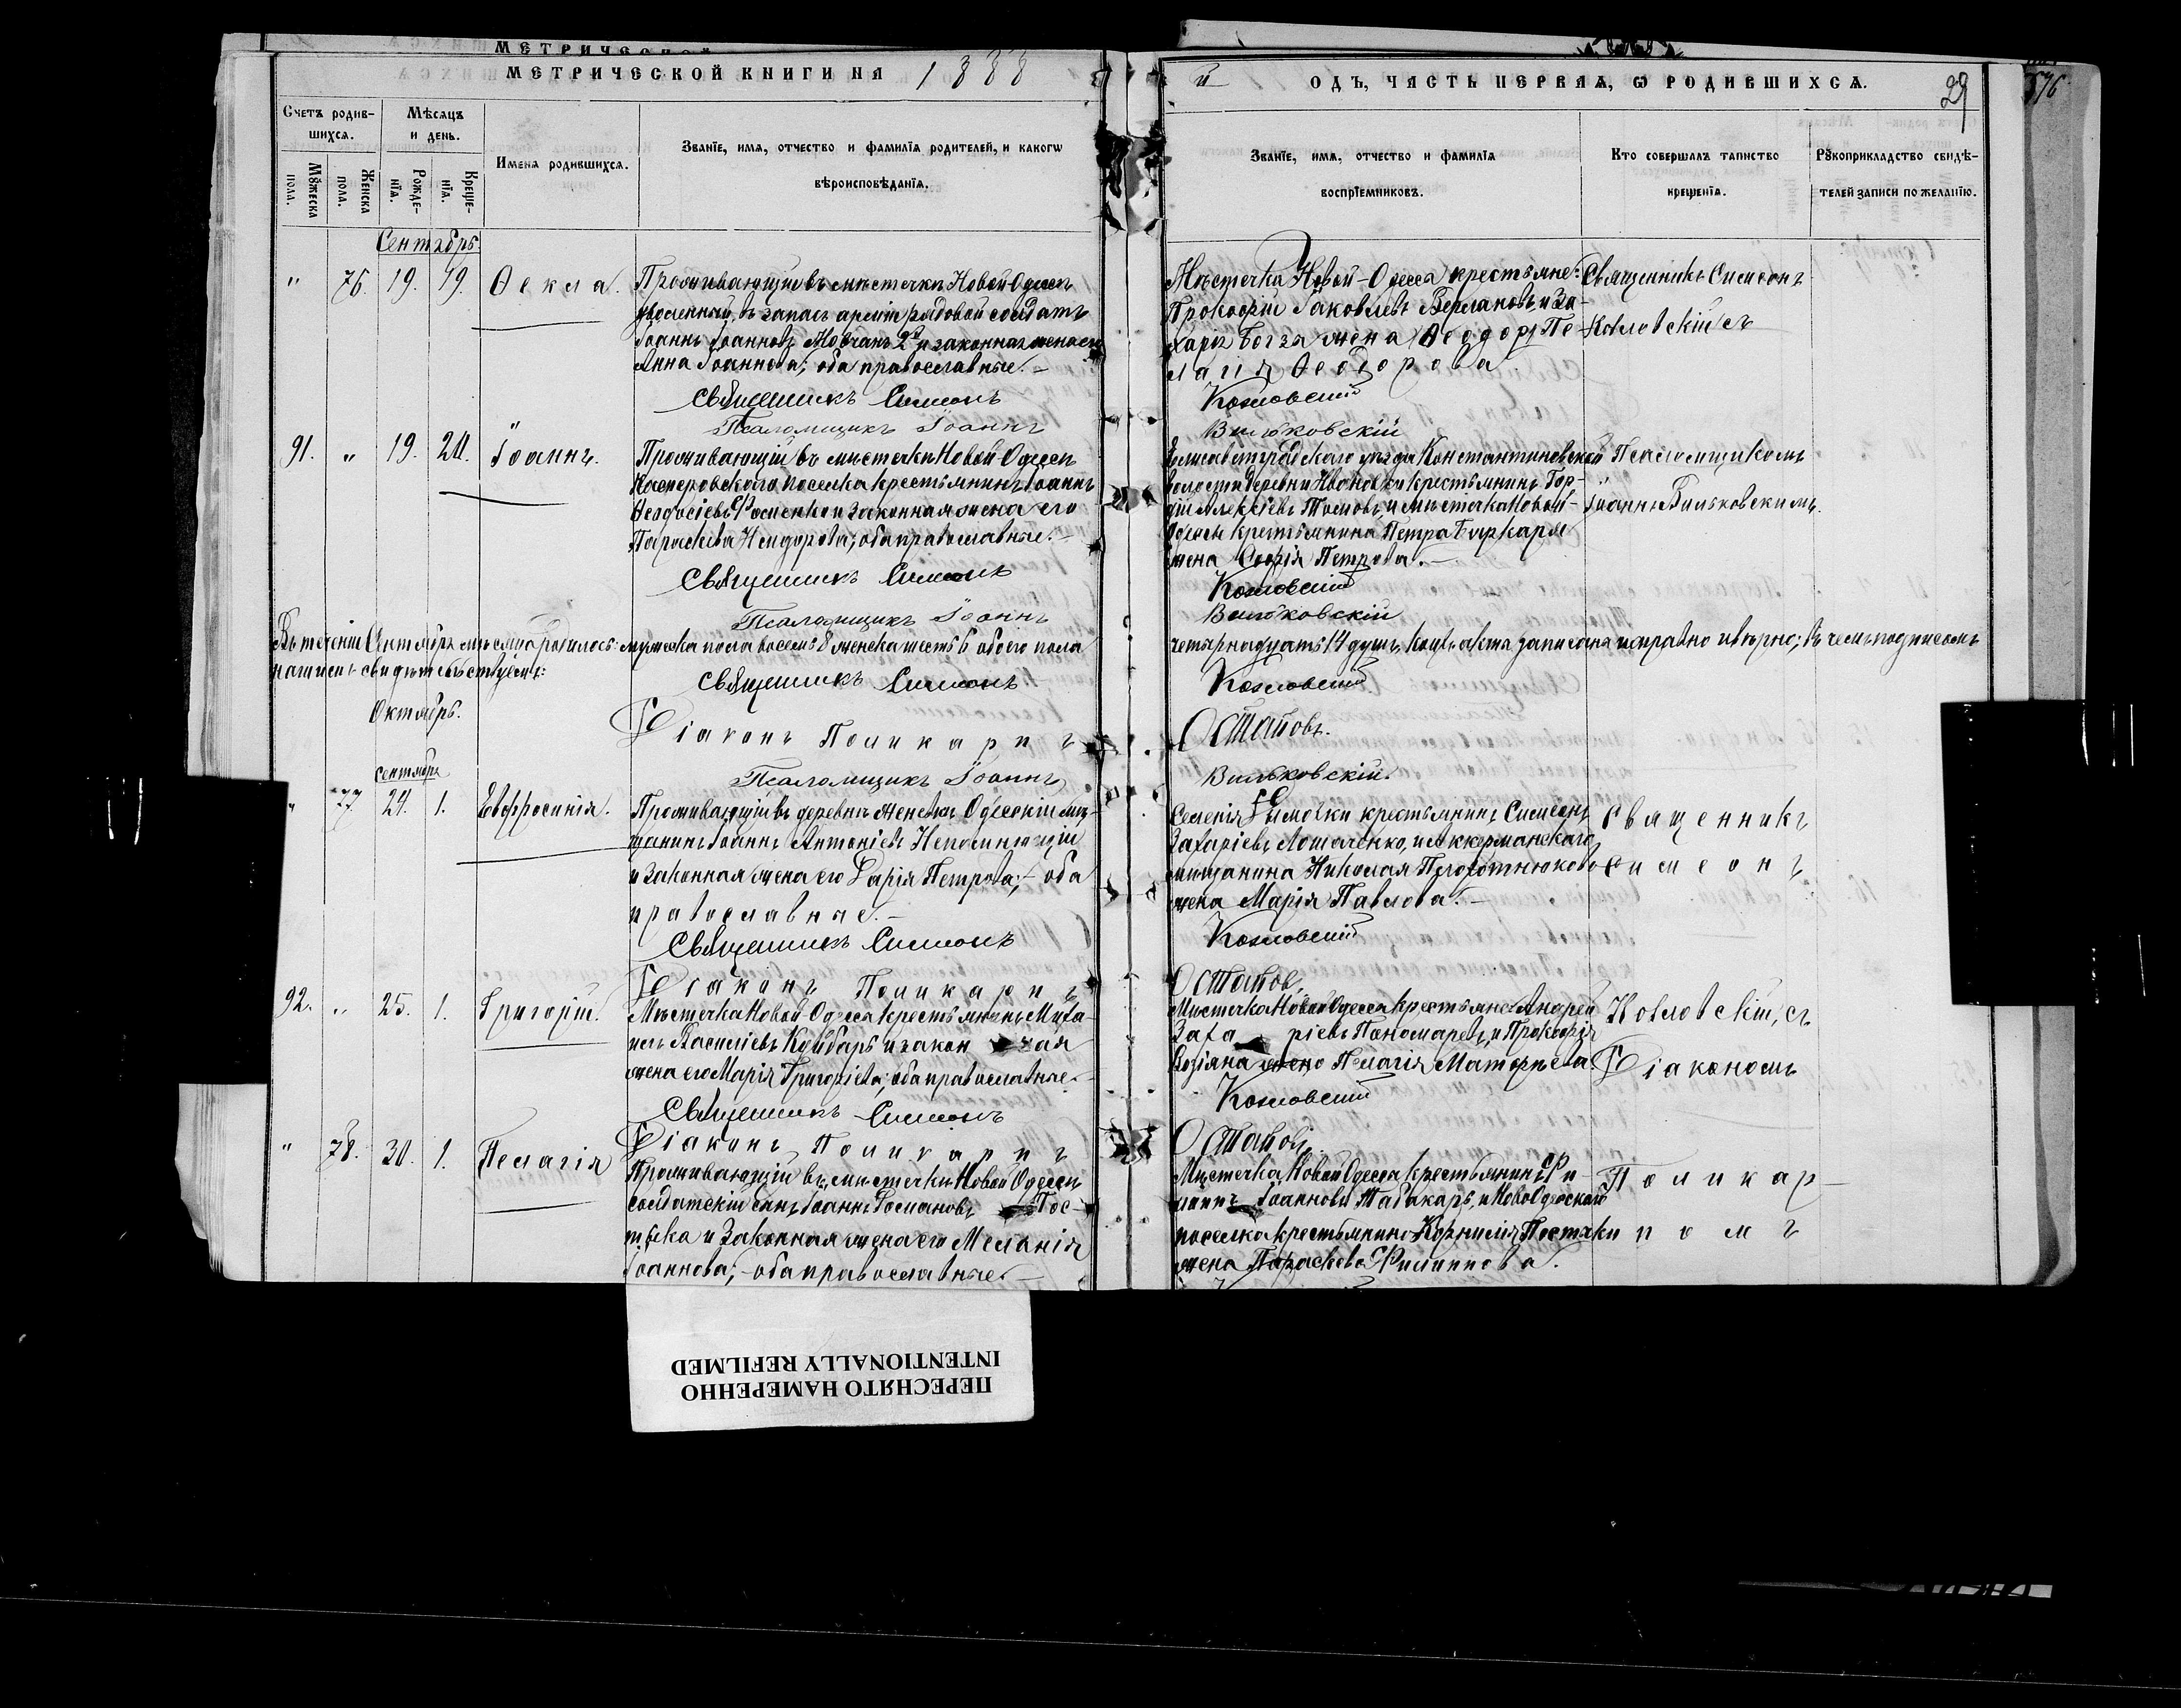 МЕТРИЧЕСКОЙ КНИГИ НА 1888 й ОДЪ, ЧАСТЬ ПЕРВАЯ, Ѡ РОДИВШИХСЯ. 29
576
Счетъ родив-шихся.
Мѣсяцъ и день.
Имена родившихся.
Званїе, имя, отчество и фамилїя родителей, и какогѡ вѣроисповѣданїя.
Званїе, имя, отчество и фамилїя воспрїемниковъ.
Кто совершалъ таинство крещенїя.
Рꙋкоприкладство свидѣ-телей записи по желанїю.
Мꙋжеска пола.
Женска пола.
Рожде-нїя.
Креще-нїя.
Сентябрь.
" 76. 19. 19. Ѳекла.
Проживающій въ мѣстечкѣ Новой-Одессѣ
уволенный въ запасъ арміи рядовой солдатъ
Іоаннъ Іоанновъ Мовчанъ 2й и законная жена его
Анна Іоаннова; оба православные.-
Священникъ Симеонъ
Псаломщикъ Іоаннъ
Мѣстечка Новой-Одесса крестьяне:
Прокофій Іаковлевъ Верлановъ, и За-
харія жена Ѳеодора Пе-
лагія Ѳеодорова
Козловскій
Вильковскій
Священникъ Симеонъ
Козловскій съ
91. " 19. 24. Іоаннъ.
Проживающій въ мѣстечкѣ Новой-Одессѣ
Касперовскаго поселка крестьянинъ Іоаннъ
Ѳеодосіевъ Фоменко и законная жена его
Параскева Исидорова; оба православные.-
Священникъ Симеонъ
Псаломщикъ Іоаннъ
Елисаветградскаго уѣзда Константиновской
волости деревни Ивановки крестьянинъ Гор-
дій Алексіевъ Титовъ, и мѣстечка Новой-
Одессы крестьянина Петра Биркаря
жена Софія Петрова.-
Козловскій
Вильковскій
Псаломщикомъ
Іоанномъ Вильковскимъ.
Въ теченіи Сентября мѣсяца родилось: мужеска пола восемь 8 женска шесть 6 обоего пола четырнадцать 14 душъ, коихъ акта записана исправно и вѣрно; въ чемъ подписомъ
нашимъ свидѣтельствуемъ:
Священникъ Симеонъ Козловскій
Октябрь.
Діаконъ Поликарпъ Остаповъ.
Псаломщикъ Іоаннъ Вильковскій.
сентября
" 77. 24. 1. Евфросинія.
Проживающій въ деревнѣ Женевкѣ Одесскій мѣ-
щанинъ Іоаннъ Антоніевъ Непомнющій
и законная жена его Дарія Петрова;- оба
православные.-
Священникъ Симеонъ
Діаконъ Поликарпъ
Селенія Дымовки крестьянинъ Симеонъ
Захаріевъ Лошаченко, и Аккерманскаго
мѣщанина Николая
жена Марія Павлова.-
Козловскій
Остаповъ.
Священникъ
Симеонъ
92. " 25. 1. Григорій.
Мѣстечка Новой-Одесса крестьянинъ Миха-
илъ Василіевъ Койбарь и законная
жена его Марія Григоріева; оба православные.-
Священникъ Симеонъ
Діаконъ Поликарпъ
Мѣстечка Новой Одесса крестьяне: Андрей
Захаріевъ Пономаревъ, и Прокофія
Козіяна жена Пелагія Матѳеева.
Козловскій
Остаповъ
Козловскій, съ
Діакономъ
" 78. 30. 1. Пелагія
Проживающій въ мѣстечкѣ Новой Одессѣ
солдатскій сынъ Іоаннъ Романовъ Пос-
и законная жена его Меланія
Іоаннова;- оба православные.-
Мѣстечка Новой Одесса крестьянинъ Фи-
липпъ Іоанновъ Табакарь, и Новоодесскаго
поселка крестьянина Корнилія
жена Параскева Филиппова.
Поликар-
помъ
ПЕРЕСНЯТО НАМЕРЕННО
INTENTIONALLY REFILMED